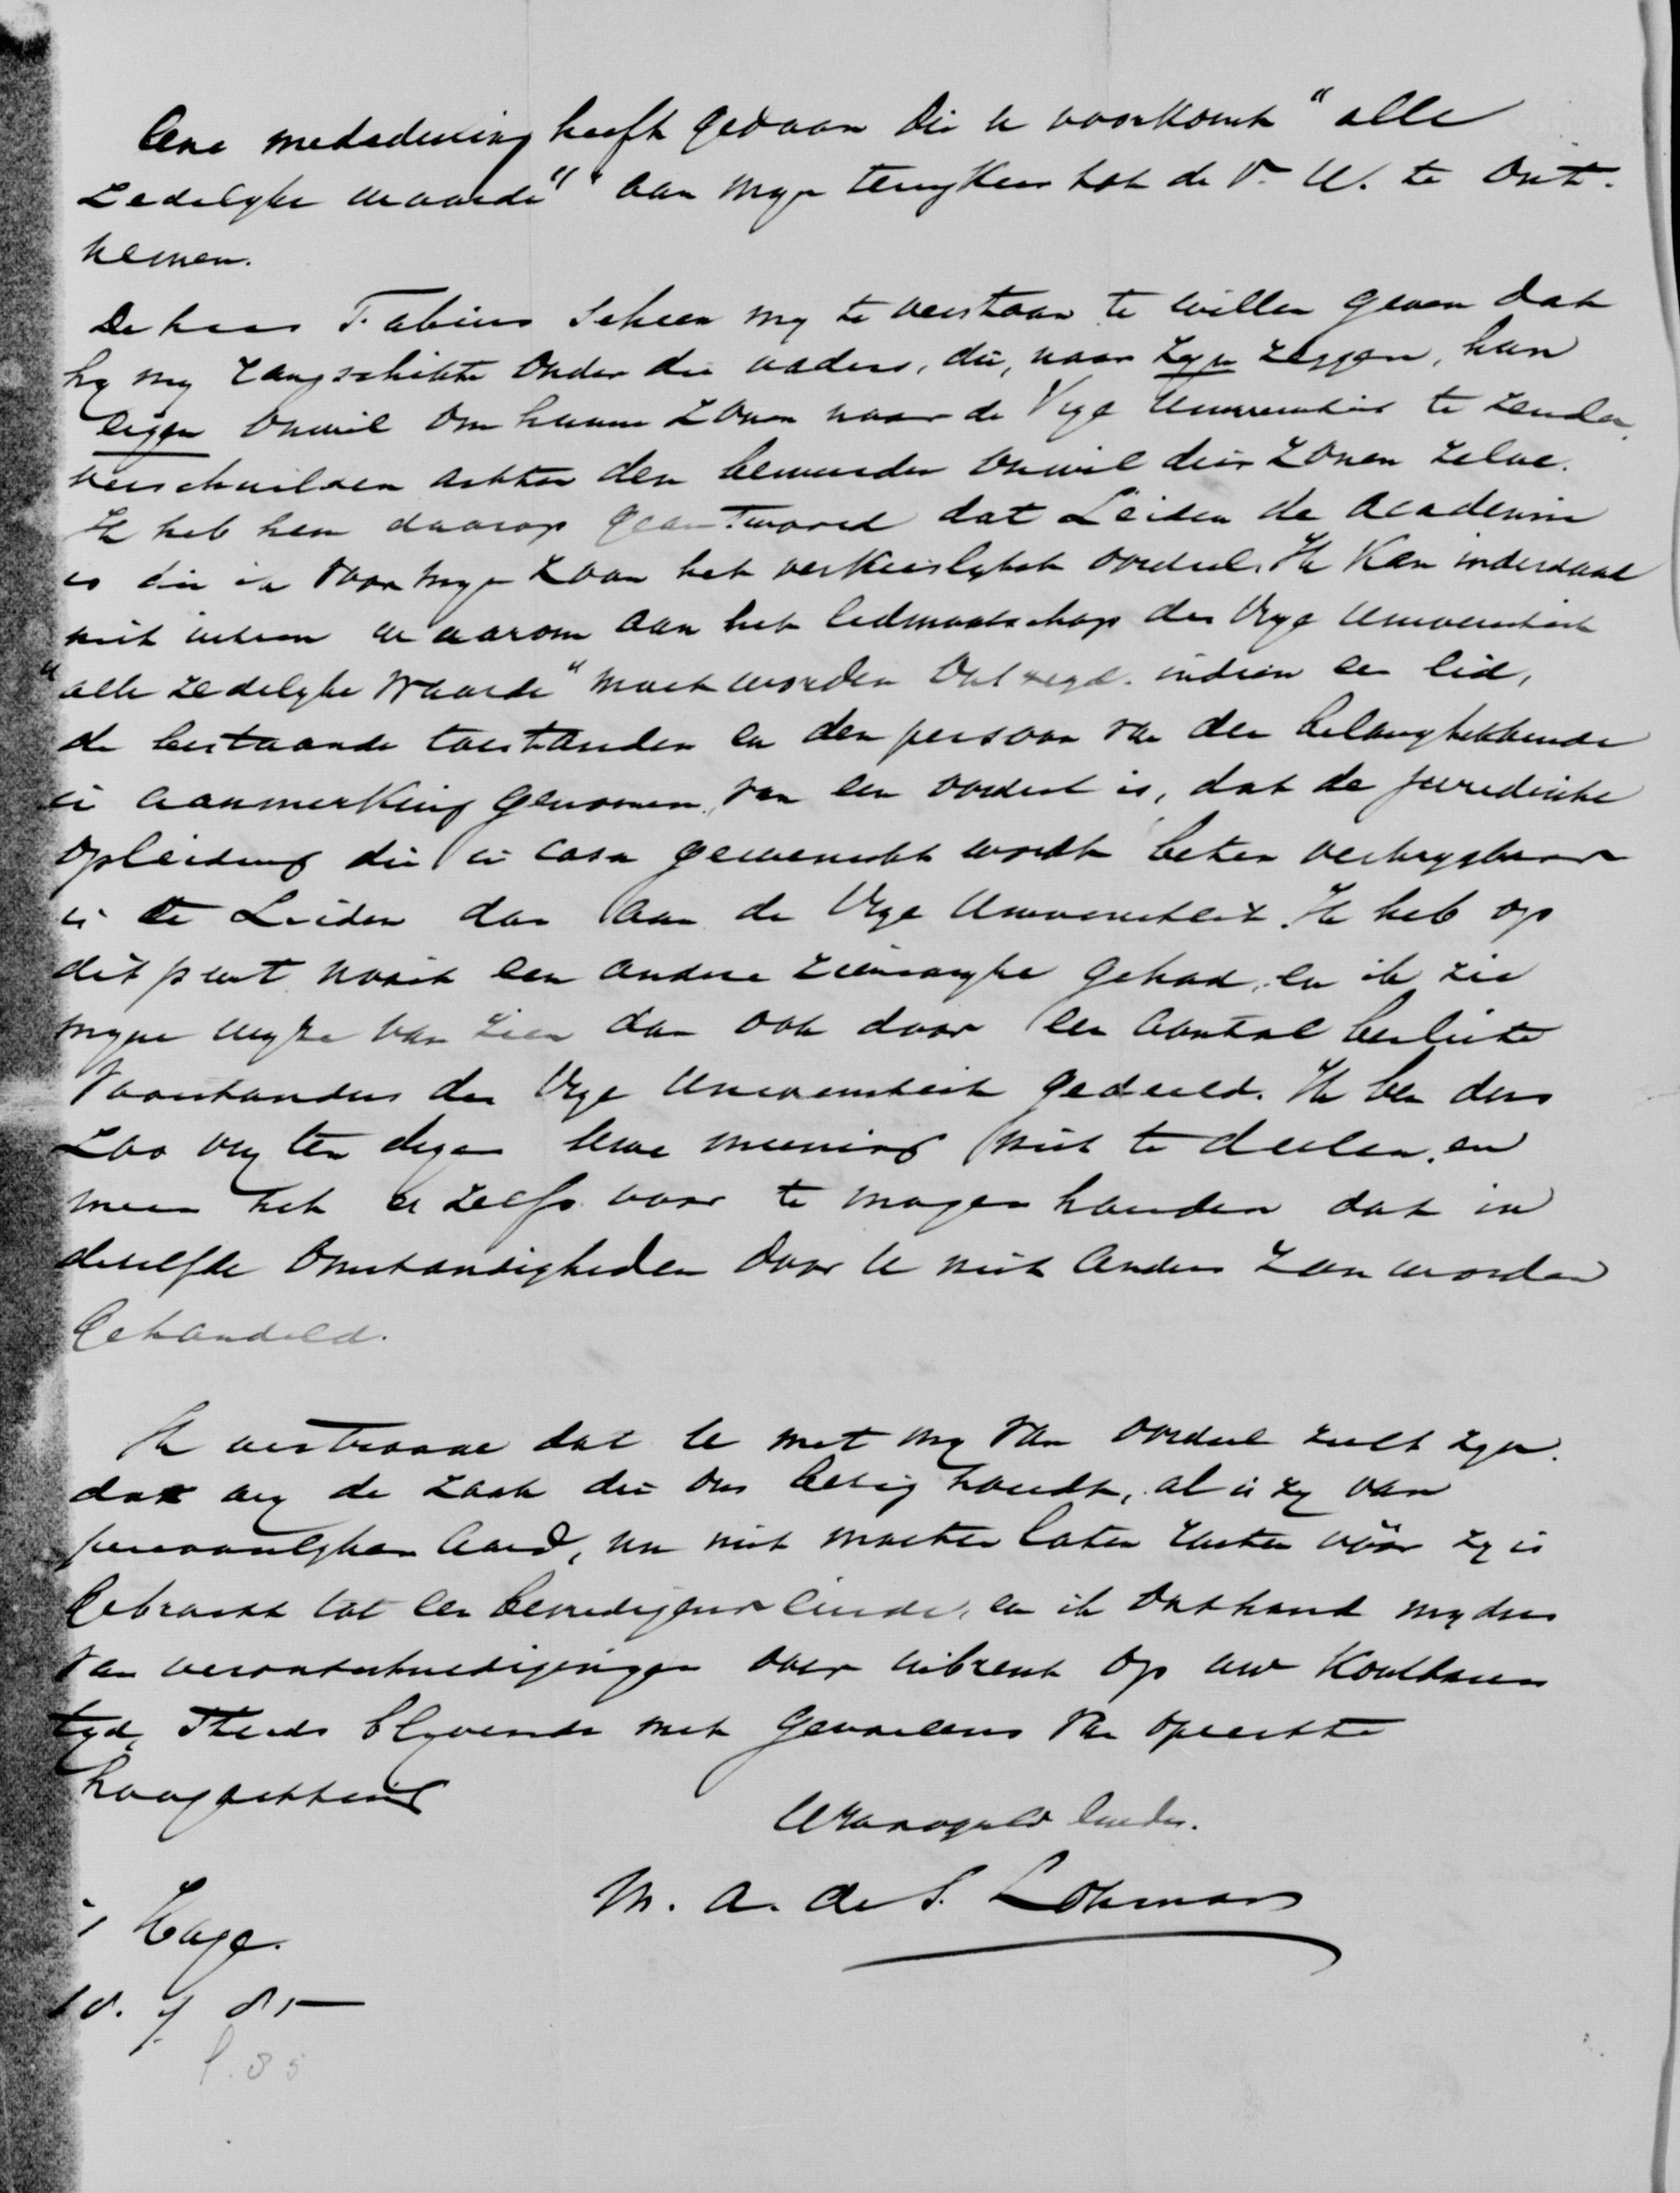 eene mededeeling heeft gedaan die U voorkomt "alle
zedelyke waarde" aan myn terugkeer tot de V. U. te ont-
nemen.
De heer Fabius scheen my te verstaan te willen geven dat
hy my rangschikte onder die vaders, die, naar zyn zeggen, hun
eigen onwil om hunne zonen naar de Vrye Universiteit te zenden
verschuilden achter den beweerden onwil dier zonen zelve.
Ik heb hem daarop geantwoord dat Leiden de Academie
is die ik voor myn zoon het verkieslykst oordeel. Ik kan inderdaad
niet inzien waarom aan het lidmaatschap der Vrye Universiteit
"alle zedelyke waarde" moet worden ontzegd indien een lid,
de bestaande toestanden en den persoon van den belanghebbende
in aanmerking genomen, van een oordeel is, dat de juridische
opleiding die in casu gewenscht wordt beter verkrygbaar
is te Leiden dan aan de Vrye Universiteit. Ik heb op
dit punt nooit een andere zienswyze gehad, en ik zie
myne wyze van zien dan ook door een aantal besliste
Voorstanders der Vrye Universiteit gedeeld. Ik ben dus
zoo vry ten dezen Uwe meening niet te deelen, en
meen het er zelfs voor te mogen houden dat in
dezelfde omstandigheden door U niet anders zou worden
gehandeld.
Ik vertrouwe dat U met my van oordeel zult zyn.
dat wy de zaak die ons bezig houdt, al is zy van
persoonlyken aard, nu niet moeten laten rusten vóór zy is
gebracht tot een bevredigend einde, en ik onthoud my dus
van verontschuldigingen over inbreuk op uw kostbaren
tyd, steeds blyvende met gevoelens van oprechte
hoogachting
UHoogeld dienaar.
M. A. de S. Lohman
's Hage.
10. 9 85